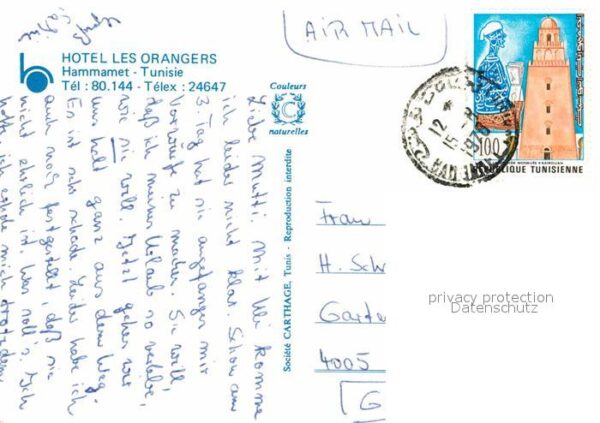 AIR MAIL
HOTEL LES ORANGERS
Hammamet - Tunisie
Tél : 80.144 - Télex : 24647
Couleurs
C
naturelles
Liebe Mutti! Mit komme
ich leider nicht klar. Schon am
3. Tag hat sie angefangen mir
Vorwürfe zu machen. Sie will,
daß ich meinen Urlaub so verlebe,
wie sie will. Jetzt gehen wir
uns halt ganz aus dem Weg.
Es ist sehr schade. Leider habe ich
auch noch festgestellt, daß sie
nicht ehrlich ist. Was soll's? Ich
hoffe, ich erhole mich trotzdem
Société CARTHAGE, Tunis - Reproduction interdite
100
REPUBLIQUE TUNISIENNE
Frau
H. Sch
Garte
4005
privacy protection
Datenschutz